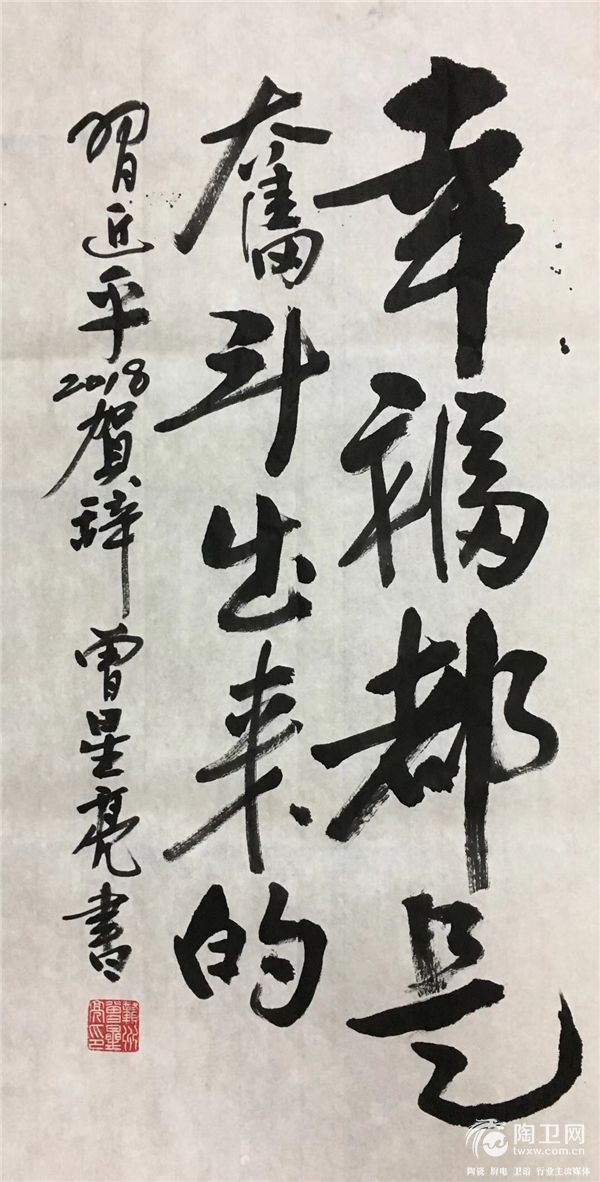 幸福都是
奮斗出来的
習近平2018賀辞 曾星亮書
陶卫网
twxw.com.cn
陶瓷 厨电 卫浴 行业主流媒体